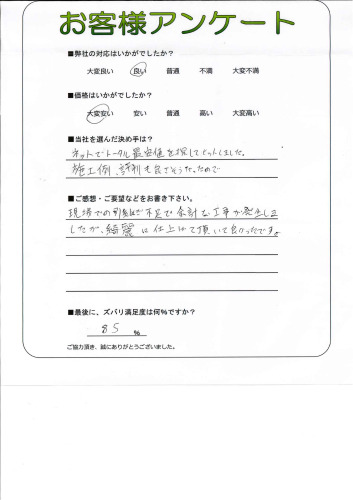 お客様アンケート
■弊社の対応はいかがでしたか?
大変良い 良い 普通 不満 大変不満
■価格はいかがでしたか?
大変安い 安い 普通 高い 大変高い
■当社を選んだ決め手は?
ネットでトータル最安値を探してヒットしました。
施工例、評判も良さそうだったので
■ご感想・ご要望などをお書き下さい。
現場での 不足で余計な工事が発生しま
したが、綺麗に仕上げて頂いて良かったです。
■最後に、ズバリ満足度は何%ですか?
85 %
ご協力頂き、誠にありがとうございました。